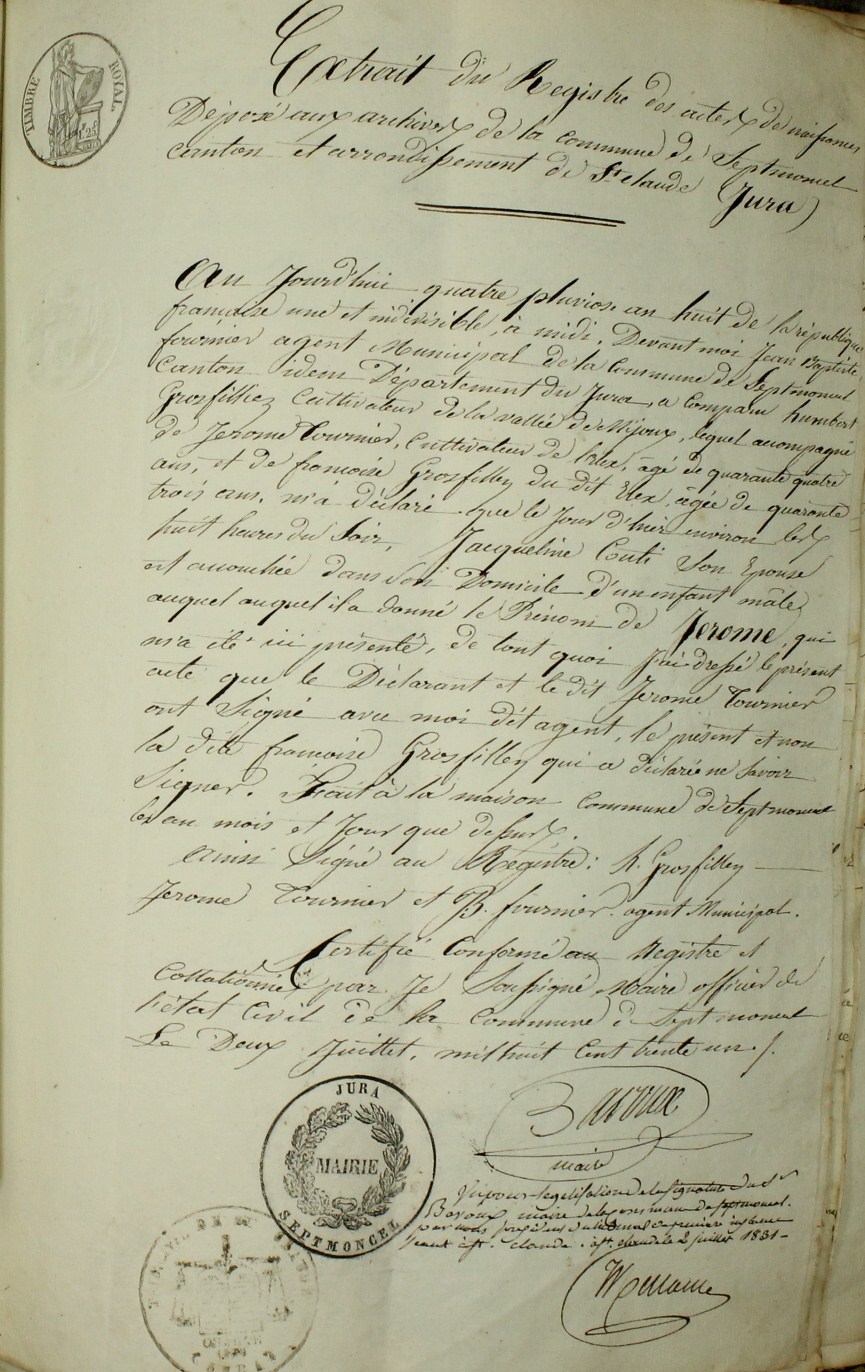 TIMBRE ROYAL
1F 25
Extrait du Registre des actes de naissances
Déposé aux archives de la commune de Septmoncel
canton et arrondissement de St Claude (Jura)
Au Jourd'hui quatre pluviose an huit de la république
française une et indivisible, à midi. Devant moi Jean Baptiste
fournier agent Municipal de la Commune de Septmoncel
Canton idem Département du Jura, a comparu humbert
Grosfilley Cultivateur de la vallée de Mijoux, lequel accompagné
de Jerome Tournier, Cultivateur de Lelex, âgé de quarante quatre
ans, et de francoise Grosfilley du dit Lelex, âgée de quarante
trois ans, m'a déclaré que le Jour d'hier environ les
huit heures du Soir, Jacqueline Son Epouse
est accouchée dans son Domicile d'un enfant mâle,
auquel auquel il a donné le Prénom de Jerome, qui
m'a été ici présenté, de tout quoi J'ai dressé le présent
acte que le Déclarant et le dit Jerome Tournier
ont Signé avec moi dit agent, le présent et non
la dite francoise Grosfilley qui a déclaré ne Savoir
Signer. Fait à la maison Commune de Septmoncel
les an mois et Jour que dessus.
Ainsi Signé au Registre: h. Grosfilley
Jerome Tournier et B. fournier. agent Municipal.
Certifié Conforme au Registre et
Collationné par Je Soussigné Maire officier de
l'état Civil de la Commune de Septmoncel
Le Deux Juillet, mil huit Cent trente un.
Bavoux
maire
Vu pour légalisation de la signature du Sr
Bavoux maire de la commune de septmoncel.
par nous président du tribunal de première instance
séant à St. claude. à St. claude le 2 juillet 1831
JURA
MAIRIE
SEPTMONCEL